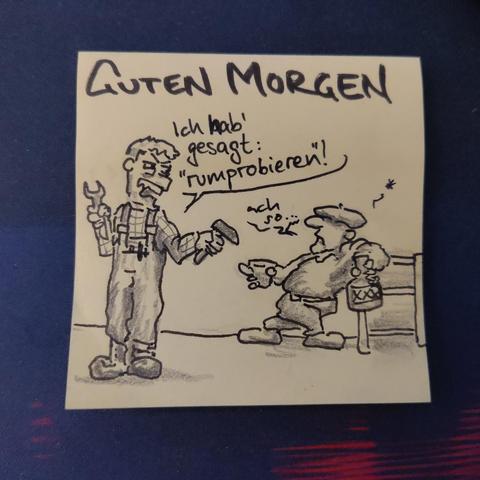 GUTEN MORGEN
Ich hab'
gesagt:
"rumprobieren"!
ach
so...
XXX